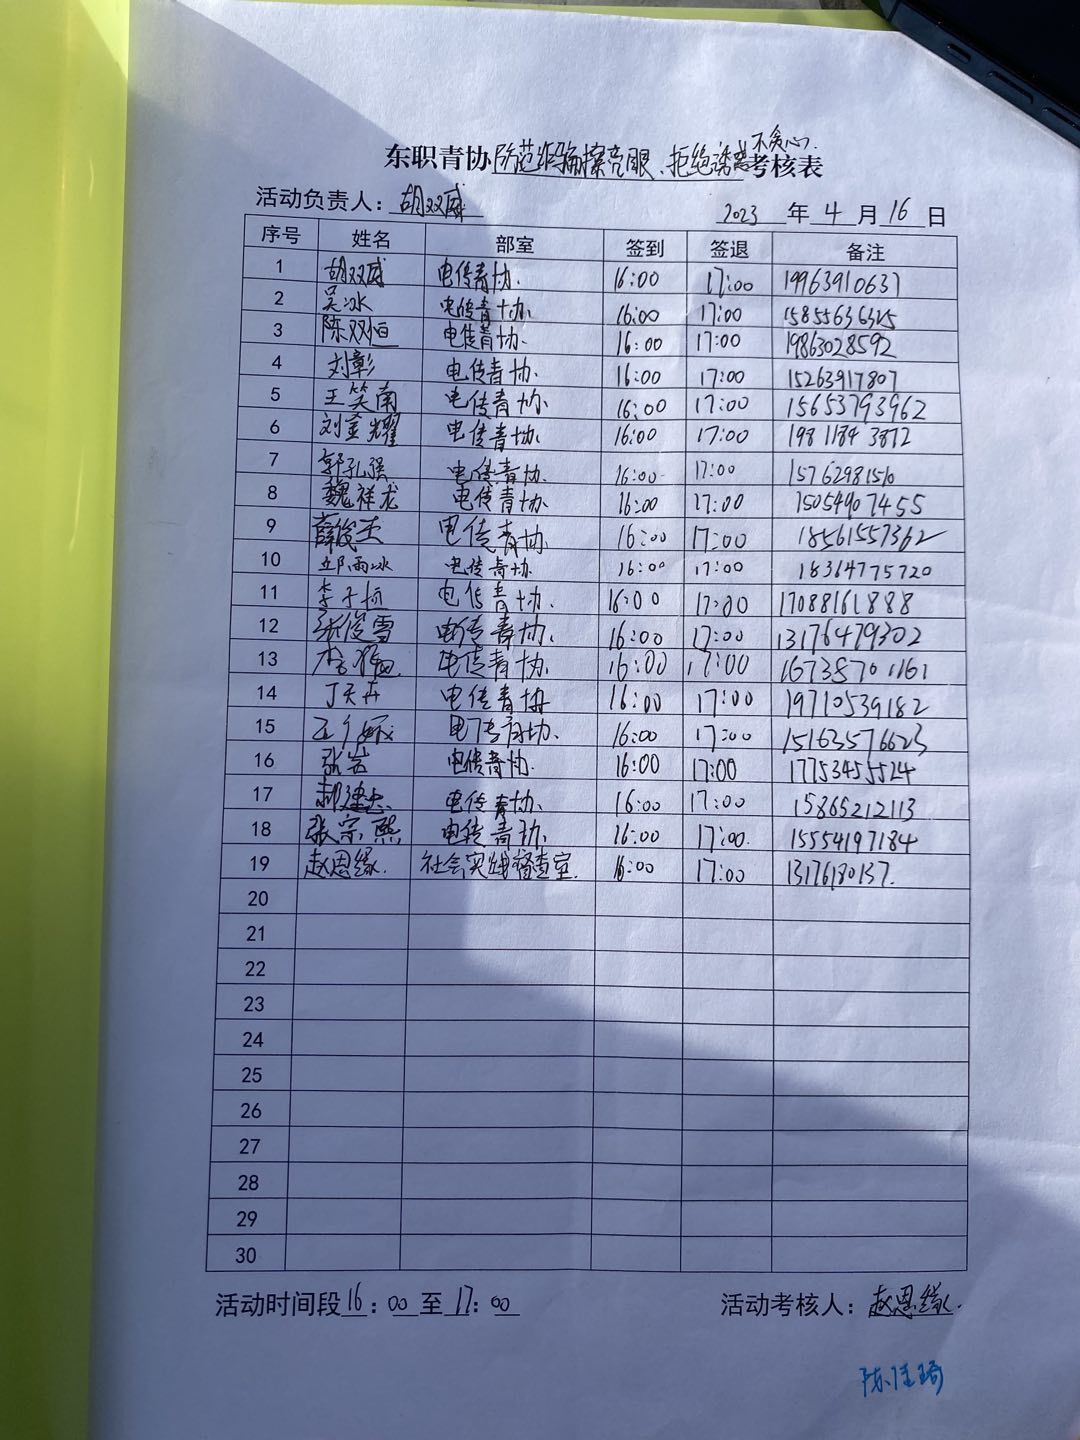 不贪心
东职青协防范诈骗擦亮眼、拒绝诱惑考核表
活动负责人：胡双威 2023年4月16日
序号 姓名 部室 签到 签退 备注
1 胡双威 电传青协 16:00 17:00 19963910637
2 吴冰 电传青协 16:00 17:00 15855636325
3 陈双恒 电传青协 16:00 17:00 19863028592
4 刘彰 电传青协 16:00 17:00 15263917807
5 王笑南 电传青协 16:00 17:00 15653793962
6 刘金耀 电传青协 16:00 17:00 19811843872
7 郭孔强 电传青协 16:00 17:00 15762981510
8 魏祥龙 电传青协 16:00 17:00 15054907455
9 薛俊杰 电传青协 16:00 17:00 18561557362
10 邹雨冰 电传青协 16:00 17:00 18364775720
11 李子恒 电传青协 16:00 17:00 17088161888
12 张俊雪 电传青协 16:00 17:00 13176479302
13 电传青协 16:00 17:00 16738701161
14 丁天卉 电传青协 16:00 17:00 19710539182
15 电传青协 16:00 17:00 15163576623
16 张岩 电传青协 16:00 17:00 17753455524
17 郝建忠 电传青协 16:00 17:00 15865212113
18 张宗熙 电传青协 16:00 17:00 15554197184
19 赵恩缘 社会实践督查室 16:00 17:00 13176180137
20
21
22
23
24
25
26
27
28
29
30
活动时间段16:00至17:00 活动考核人：赵恩缘
陈佳琦